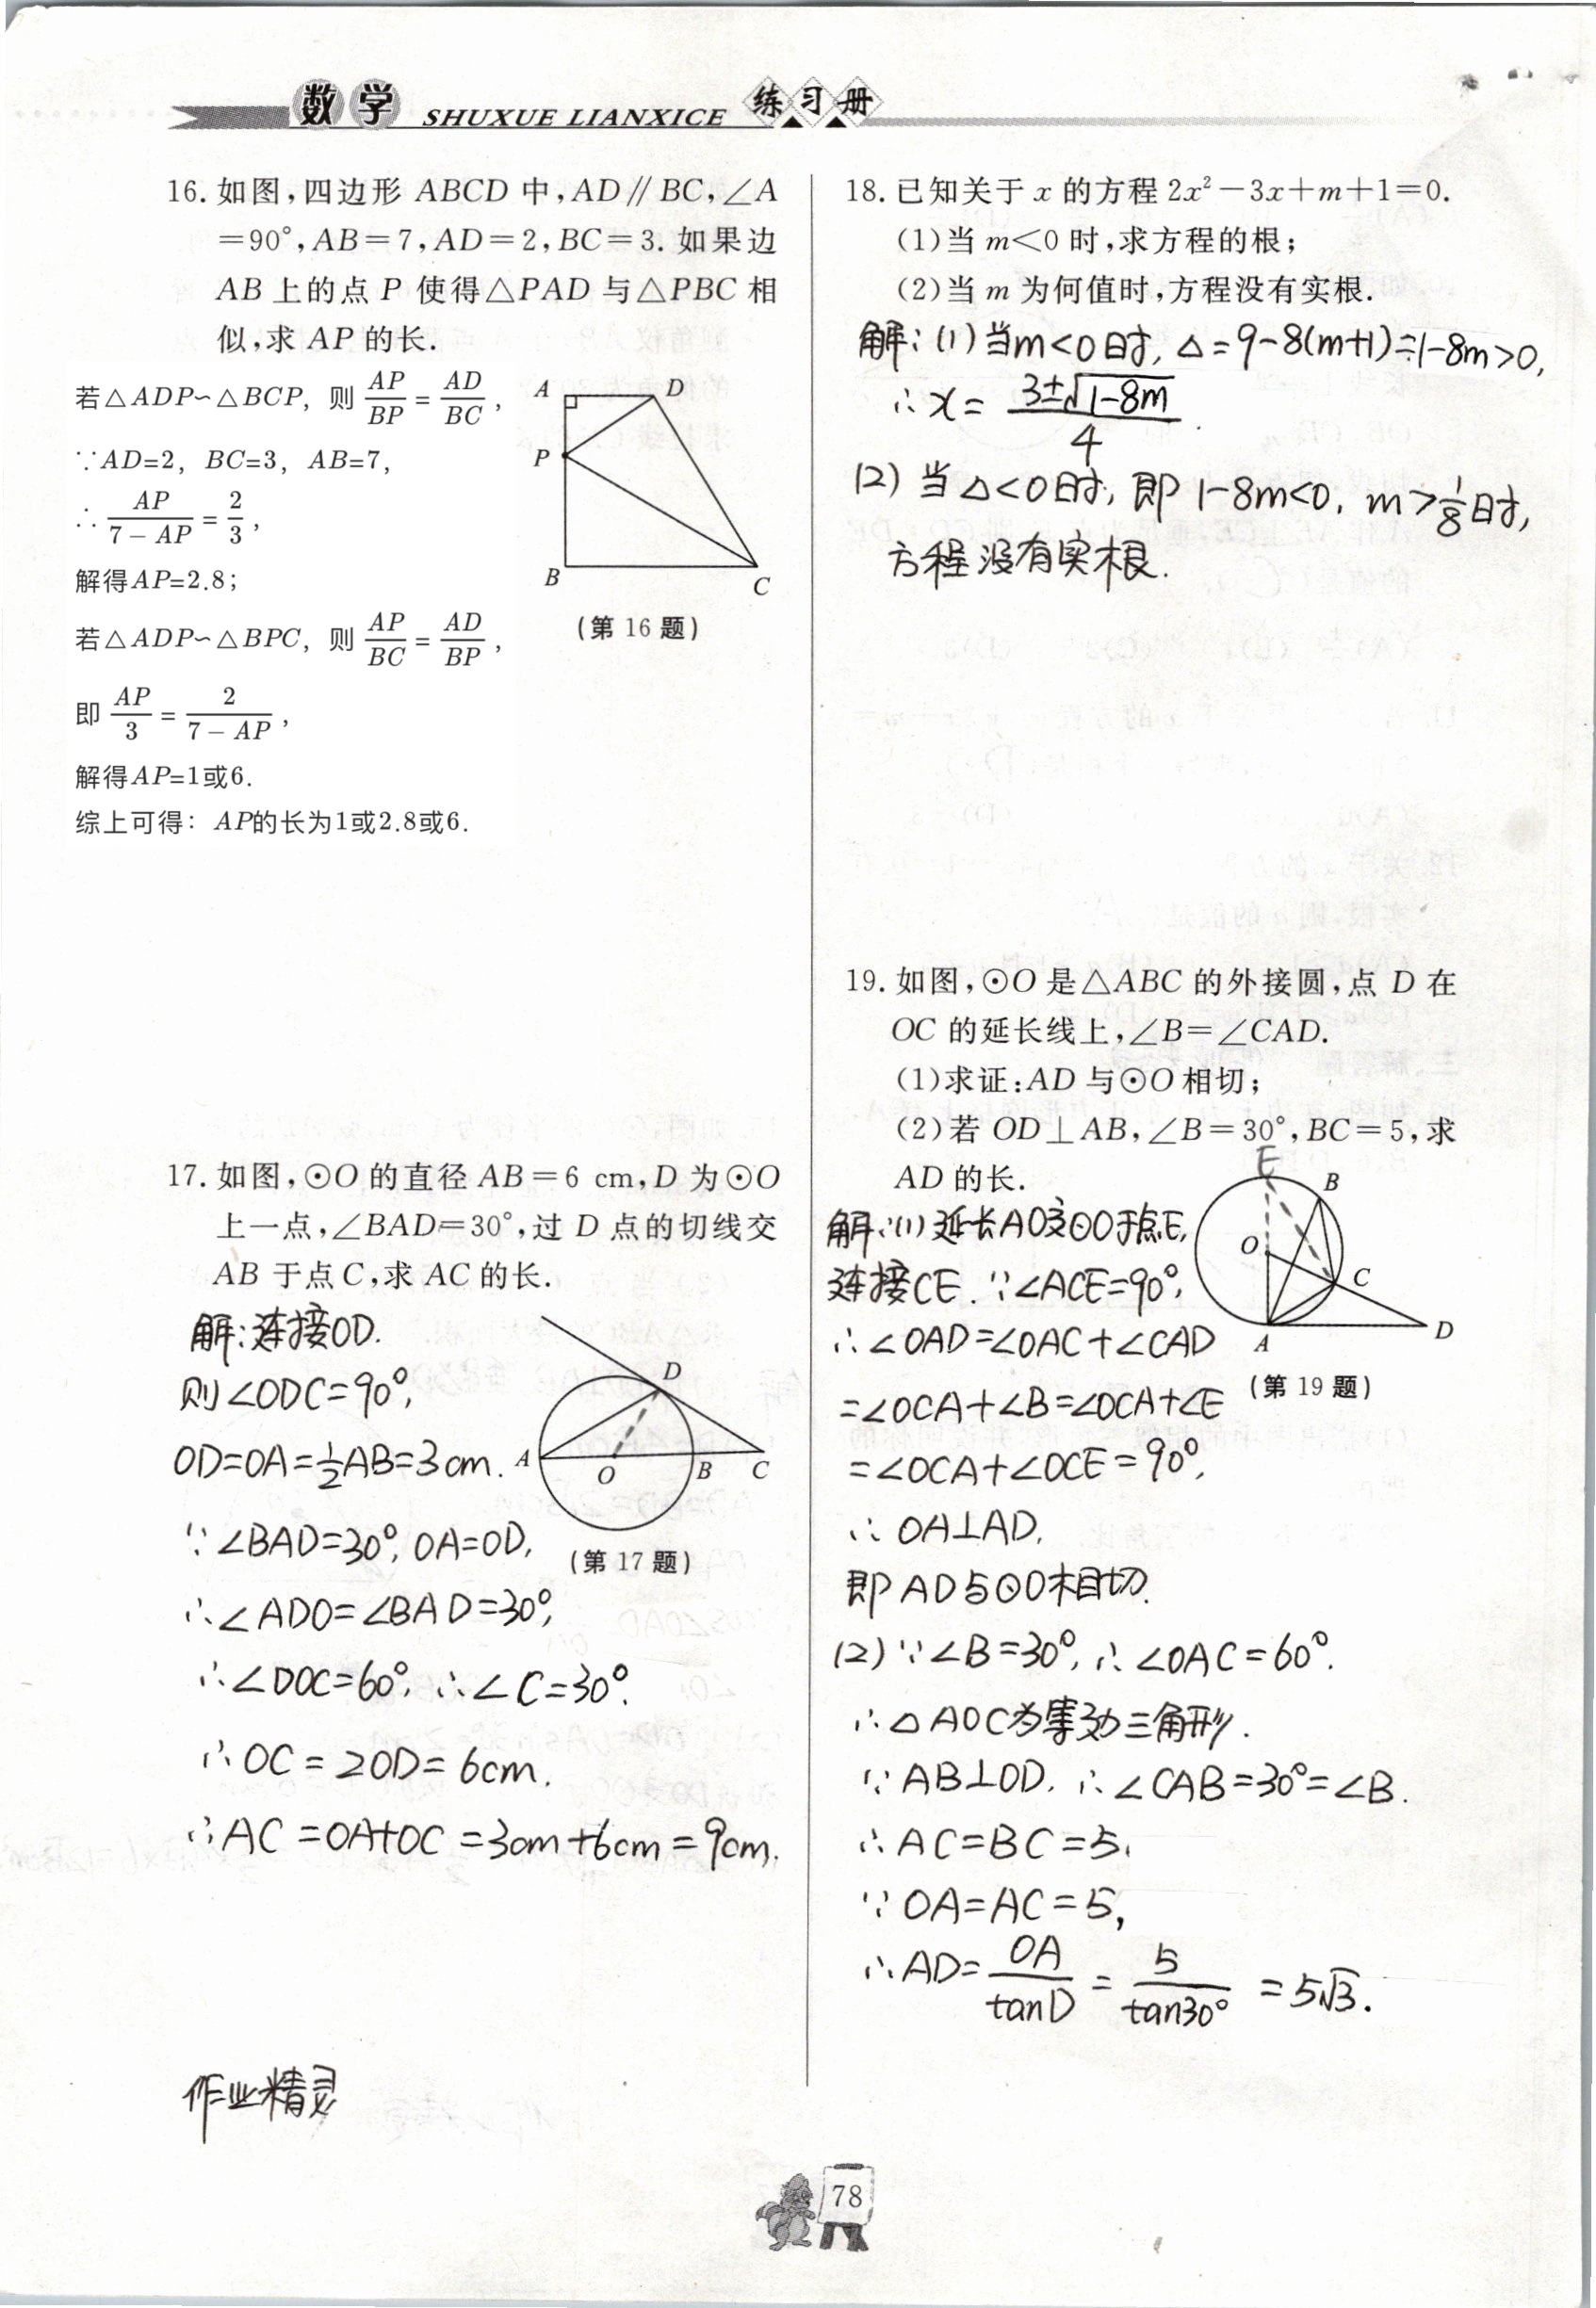 数学 SHUXUE LIANXICE 练习册
16. 如图,四边形 ABCD 中,AD∥BC,∠A
=90°,AB=7,AD=2,BC=3. 如果边
AB 上的点 P 使得△PAD 与△PBC 相
似,求 AP 的长.
若△ADP∽△BCP, 则 AP/BP = AD/BC ,
∵AD=2, BC=3, AB=7,
∴ AP/(7－AP) = 2/3 ,
解得AP=2.8;
若△ADP∽△BPC, 则 AP/BC = AD/BP ,
即 AP/3 = 2/(7－AP) ,
解得AP=1或6.
综上可得: AP的长为1或2.8或6.
A D
P
B C
(第 16 题)
17. 如图,⊙O 的直径 AB=6 cm,D 为⊙O
上一点,∠BAD=30°,过 D 点的切线交
AB 于点 C,求 AC 的长.
解:连接OD.
则∠ODC=90°,
OD=OA=1/2AB=3cm.
∵∠BAD=30°, OA=OD,
∴∠ADO=∠BAD=30°,
∴∠DOC=60°, ∴∠C=30°.
∴OC=2OD=6cm.
∴AC=OA+OC=3cm+6cm=9cm.
D
A O B C
(第 17 题)
作业精灵
18. 已知关于 x 的方程 2x²－3x+m+1=0.
(1)当 m<0 时,求方程的根;
(2)当 m 为何值时,方程没有实根.
解:(1)当m<0时, △=9-8(m+1)=1-8m>0,
∴x= (3±√(1-8m))/4 .
(2) 当△<0时, 即 1-8m<0, m>1/8时,
方程没有实根.
19. 如图,⊙O 是△ABC 的外接圆,点 D 在
OC 的延长线上,∠B=∠CAD.
(1)求证:AD 与⊙O 相切;
(2)若 OD⊥AB,∠B=30°,BC=5,求
AD 的长.
解:(1)延长AO交⊙O于点E,
连接CE. ∵∠ACE=90°,
∴∠OAD=∠OAC+∠CAD
=∠OCA+∠B=∠OCA+∠E
=∠OCA+∠OCE=90°,
∴OA⊥AD,
即AD与⊙O相切.
(2)∵∠B=30°, ∴∠OAC=60°.
∴△AOC为等边三角形.
∵AB⊥OD, ∴∠CAB=30°=∠B.
∴AC=BC=5,
∵OA=AC=5,
∴AD= OA/tanD = 5/tan30° =5√3.
E
B
O
C
A D
(第 19 题)
78